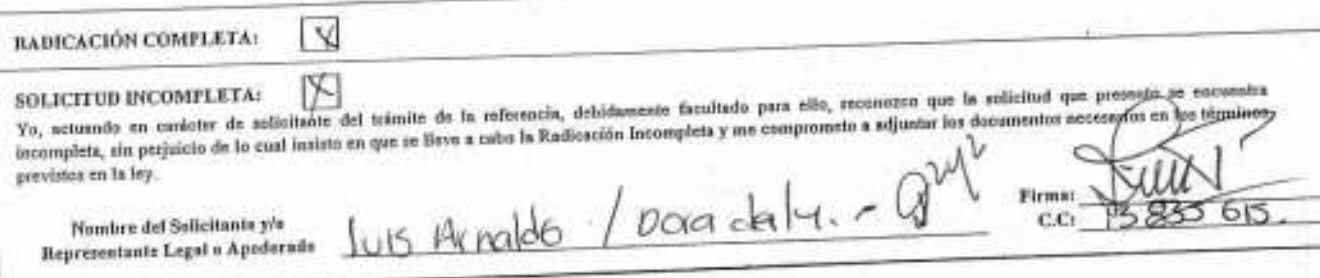 RADICACIÓN COMPLETA: X
SOLICITUD INCOMPLETA: X
Yo, actuando en carácter de solicitante del trámite de la referencia, debidamente facultado para ello, reconozco que la solicitud que presento se encuentra
incompleta, sin perjuicio de lo cual insisto en que se lleve a cabo la Radicación Incompleta y me comprometo a adjuntar los documentos necesarios en los términos
previstos en la ley.
Nombre del Solicitante y/o
Representante Legal o Apoderado
Luis Arnaldo / Dora daly. -
Firma:
C.C: 835 615.